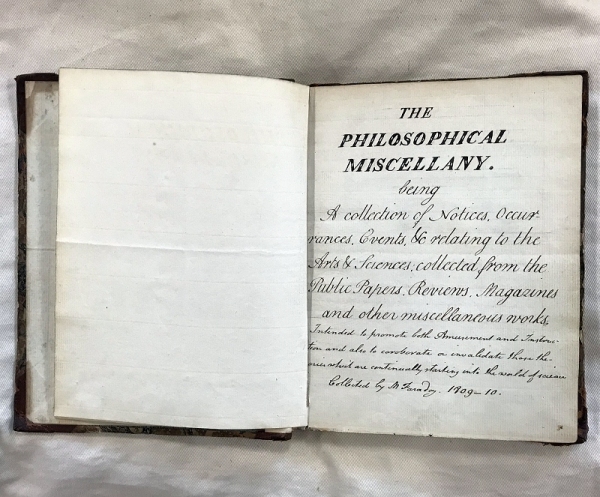 THE
PHILOSOPHICAL
MISCELLANY.
being
A collection of Notices, Occur-
rances, Events, &c relating to the
Arts & Sciences, collected from the
Public Papers, Reviews, Magazines
and other miscellaneous works,
Intended to promote both Amusement and Instruc-
tion and also to corroborate or invalidate those the-
ories which are continually starting into the world of science
Collected by M. Faraday. 1809–10.